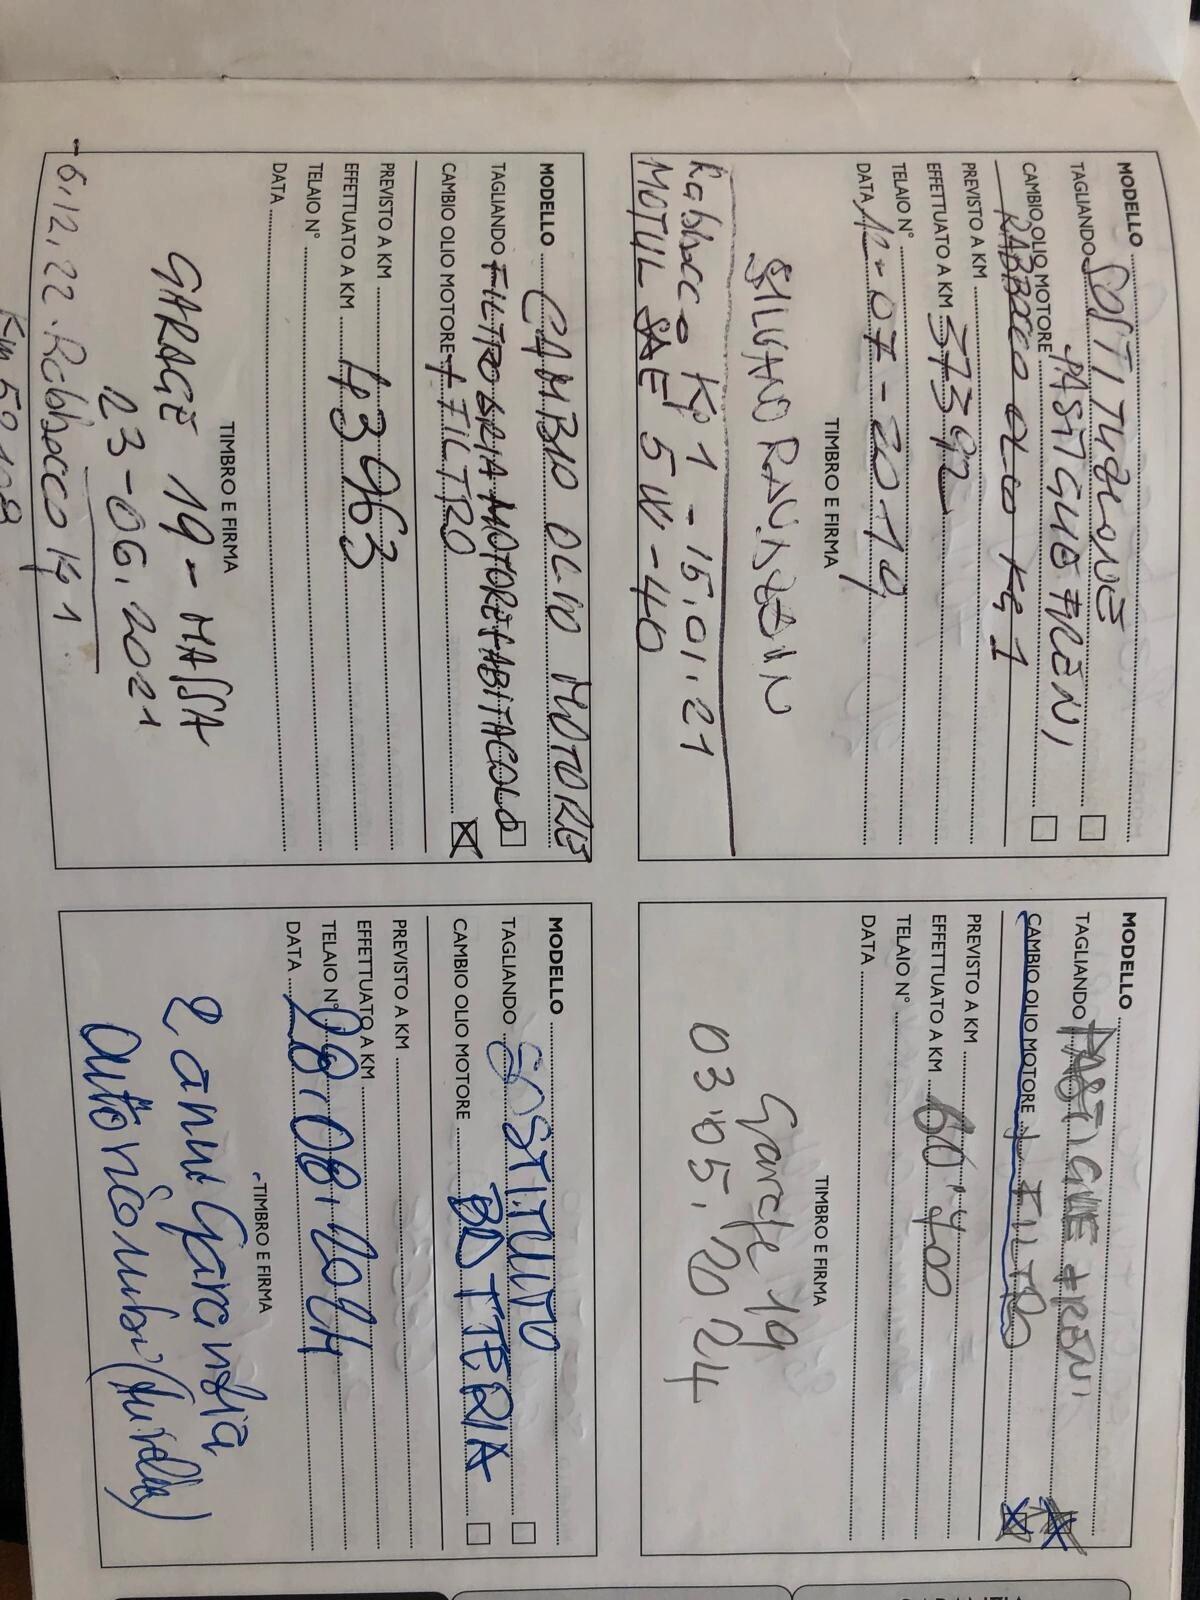 MODELLO SOSTITUZIONE
TAGLIANDO PASTIGLIE FRENI
CAMBIO OLIO MOTORE RABBOCCO OLIO KG 1
PREVISTO A KM
EFFETTUATO A KM 37392
TELAIO N°
DATA 12-07-2019
TIMBRO E FIRMA
SILVANO
Rabbocco Kg 1 - 15.01.21
MOTUL SAE 5W-40
MODELLO
TAGLIANDO PASTIGLIE FRENI
CAMBIO OLIO MOTORE + FILTRO
PREVISTO A KM
EFFETTUATO A KM 60'400
TELAIO N°
DATA
TIMBRO E FIRMA
Garage 19
03.05.2024
MODELLO CAMBIO OLIO MOTORE
TAGLIANDO FILTRO ARIA MOTORE + ABITACOLO
CAMBIO OLIO MOTORE + FILTRO
PREVISTO A KM
EFFETTUATO A KM 43963
TELAIO N°
DATA
TIMBRO E FIRMA
GARAGE 19 - MASSA
23-06.2021
- 6.12.22 Rabbocco Kg 1
Km 59108
MODELLO
TAGLIANDO SOSTITUITO
CAMBIO OLIO MOTORE BATTERIA
PREVISTO A KM
EFFETTUATO A KM
TELAIO N°
DATA 28.08.2024
TIMBRO E FIRMA
2 anni Garanzia